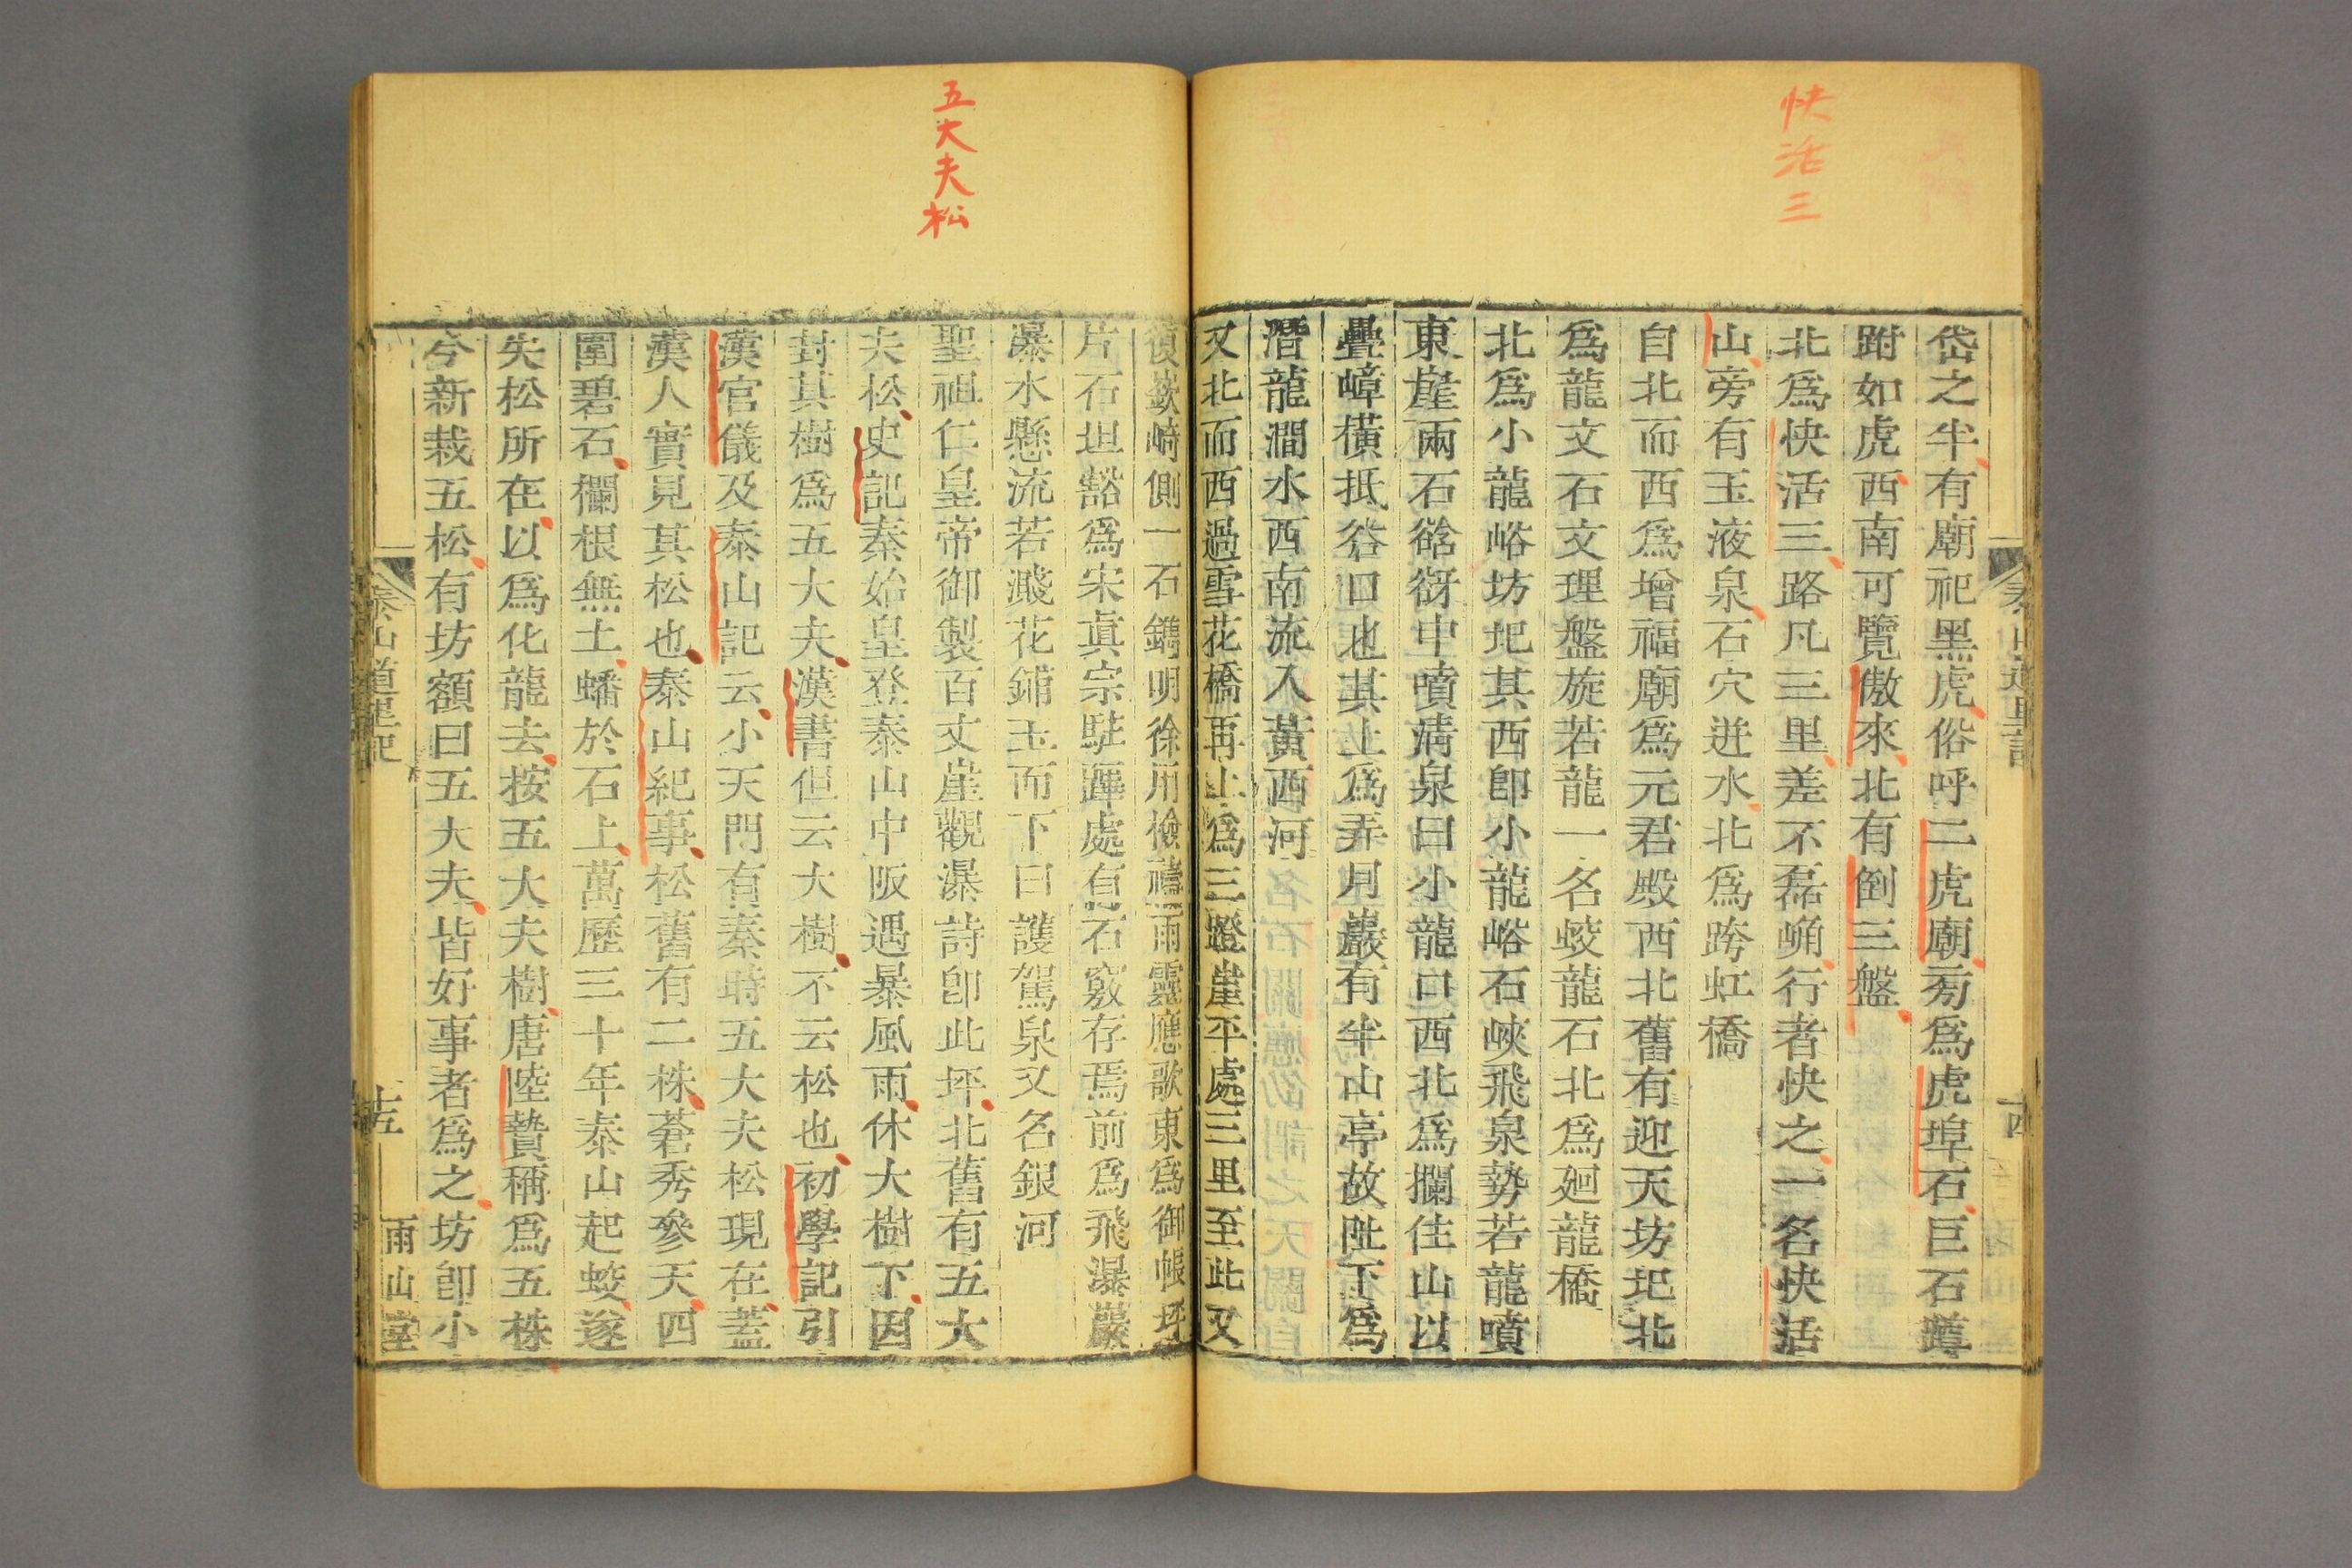 快活三
岱之半有廟祀黑虎俗呼二虎廟旁爲虎埠石巨石蹲
跗如虎西南可覽傲來北有倒三盤
北爲快活三路凡三里差不磊𡾰行者快之一名快活
山旁有玉液泉石穴迸水北爲跨虹橋
自北而西爲增福廟爲元君殿西北舊有迎天坊圯北
爲龍文石文理盤旋若龍一名蛟龍石北爲廻龍橋
北爲小龍峪坊圯其西卽小龍峪石峽飛泉勢若龍噴
東崖兩石谽谺中噴淸泉曰小龍口西北爲攔住山以
疊嶂橫抵谷口也其上爲弄月巖有半山亭故阯下爲
潛龍澗水西南流入黃西河
又北而西過雪花橋再上爲三蹬崖平處三里至此又
泰山道里記
十四
五大夫松
復嶔崎側一石鐫明徐用檢禱雨靈應歌東爲御帳坪
片石坦豁爲宋眞宗駐蹕處有石竅存焉前爲飛瀑巖
瀑水懸流若濺花鋪玉而下曰護駕泉又名銀河
聖祖仁皇帝御製百丈崖觀瀑詩卽此坪北舊有五大
夫松史記秦始皇登泰山中阪遇暴風雨休大樹下因
封其樹爲五大夫漢書但云大樹不云松也初學記引
漢官儀及泰山記云小天門有秦時五大夫松現在蓋
漢人實見其松也泰山紀事松舊有二株蒼秀參天四
圍碧石欄根無土蟠於石上萬歷三十年泰山起蛟遂
失松所在以爲化龍去按五大夫樹唐陸贄稱爲五株
今新栽五松有坊額曰五大夫皆好事者爲之坊卽小
泰山道里記
十五
雨山堂